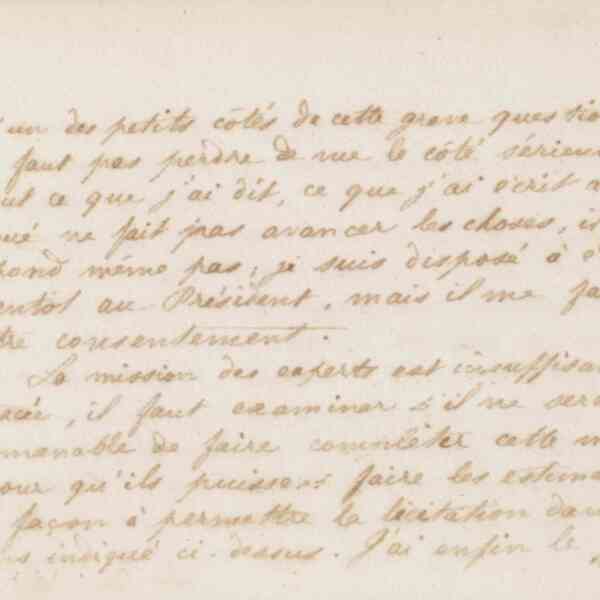 un des petits côtés de cette grave questio
faut pas perdre de vue le côté sérieu
ut ce que j'ai dit, ce que j'ai écrit a
ué ne fait pas avancer les choses, i
pond même pas, je suis disposé à é
entot au Président, mais il me fa
tre consentement.
La mission des experts est insuffisa
acée, il faut examiner s'il ne ser
menable de faire compléter cette m
our qu'ils puissent faire les estima
façon à permettre la licitation dan
ns indiqué ci-dessus. J'ai enfin le